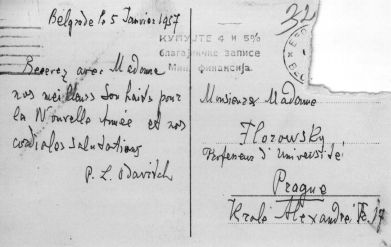 Belgrade le 5 Janvier 1937
32
КУПУЈТЕ 4 и 5%
благајничке записе
Мин. финансија.
Recevez avec Madame
nos meilleurs Souhaits pour
la Nouvelle Année et nos
cordiales salutations
Monsieur Madame
Florowsky
Professeur d'Université
Prague
Krale Alexandre